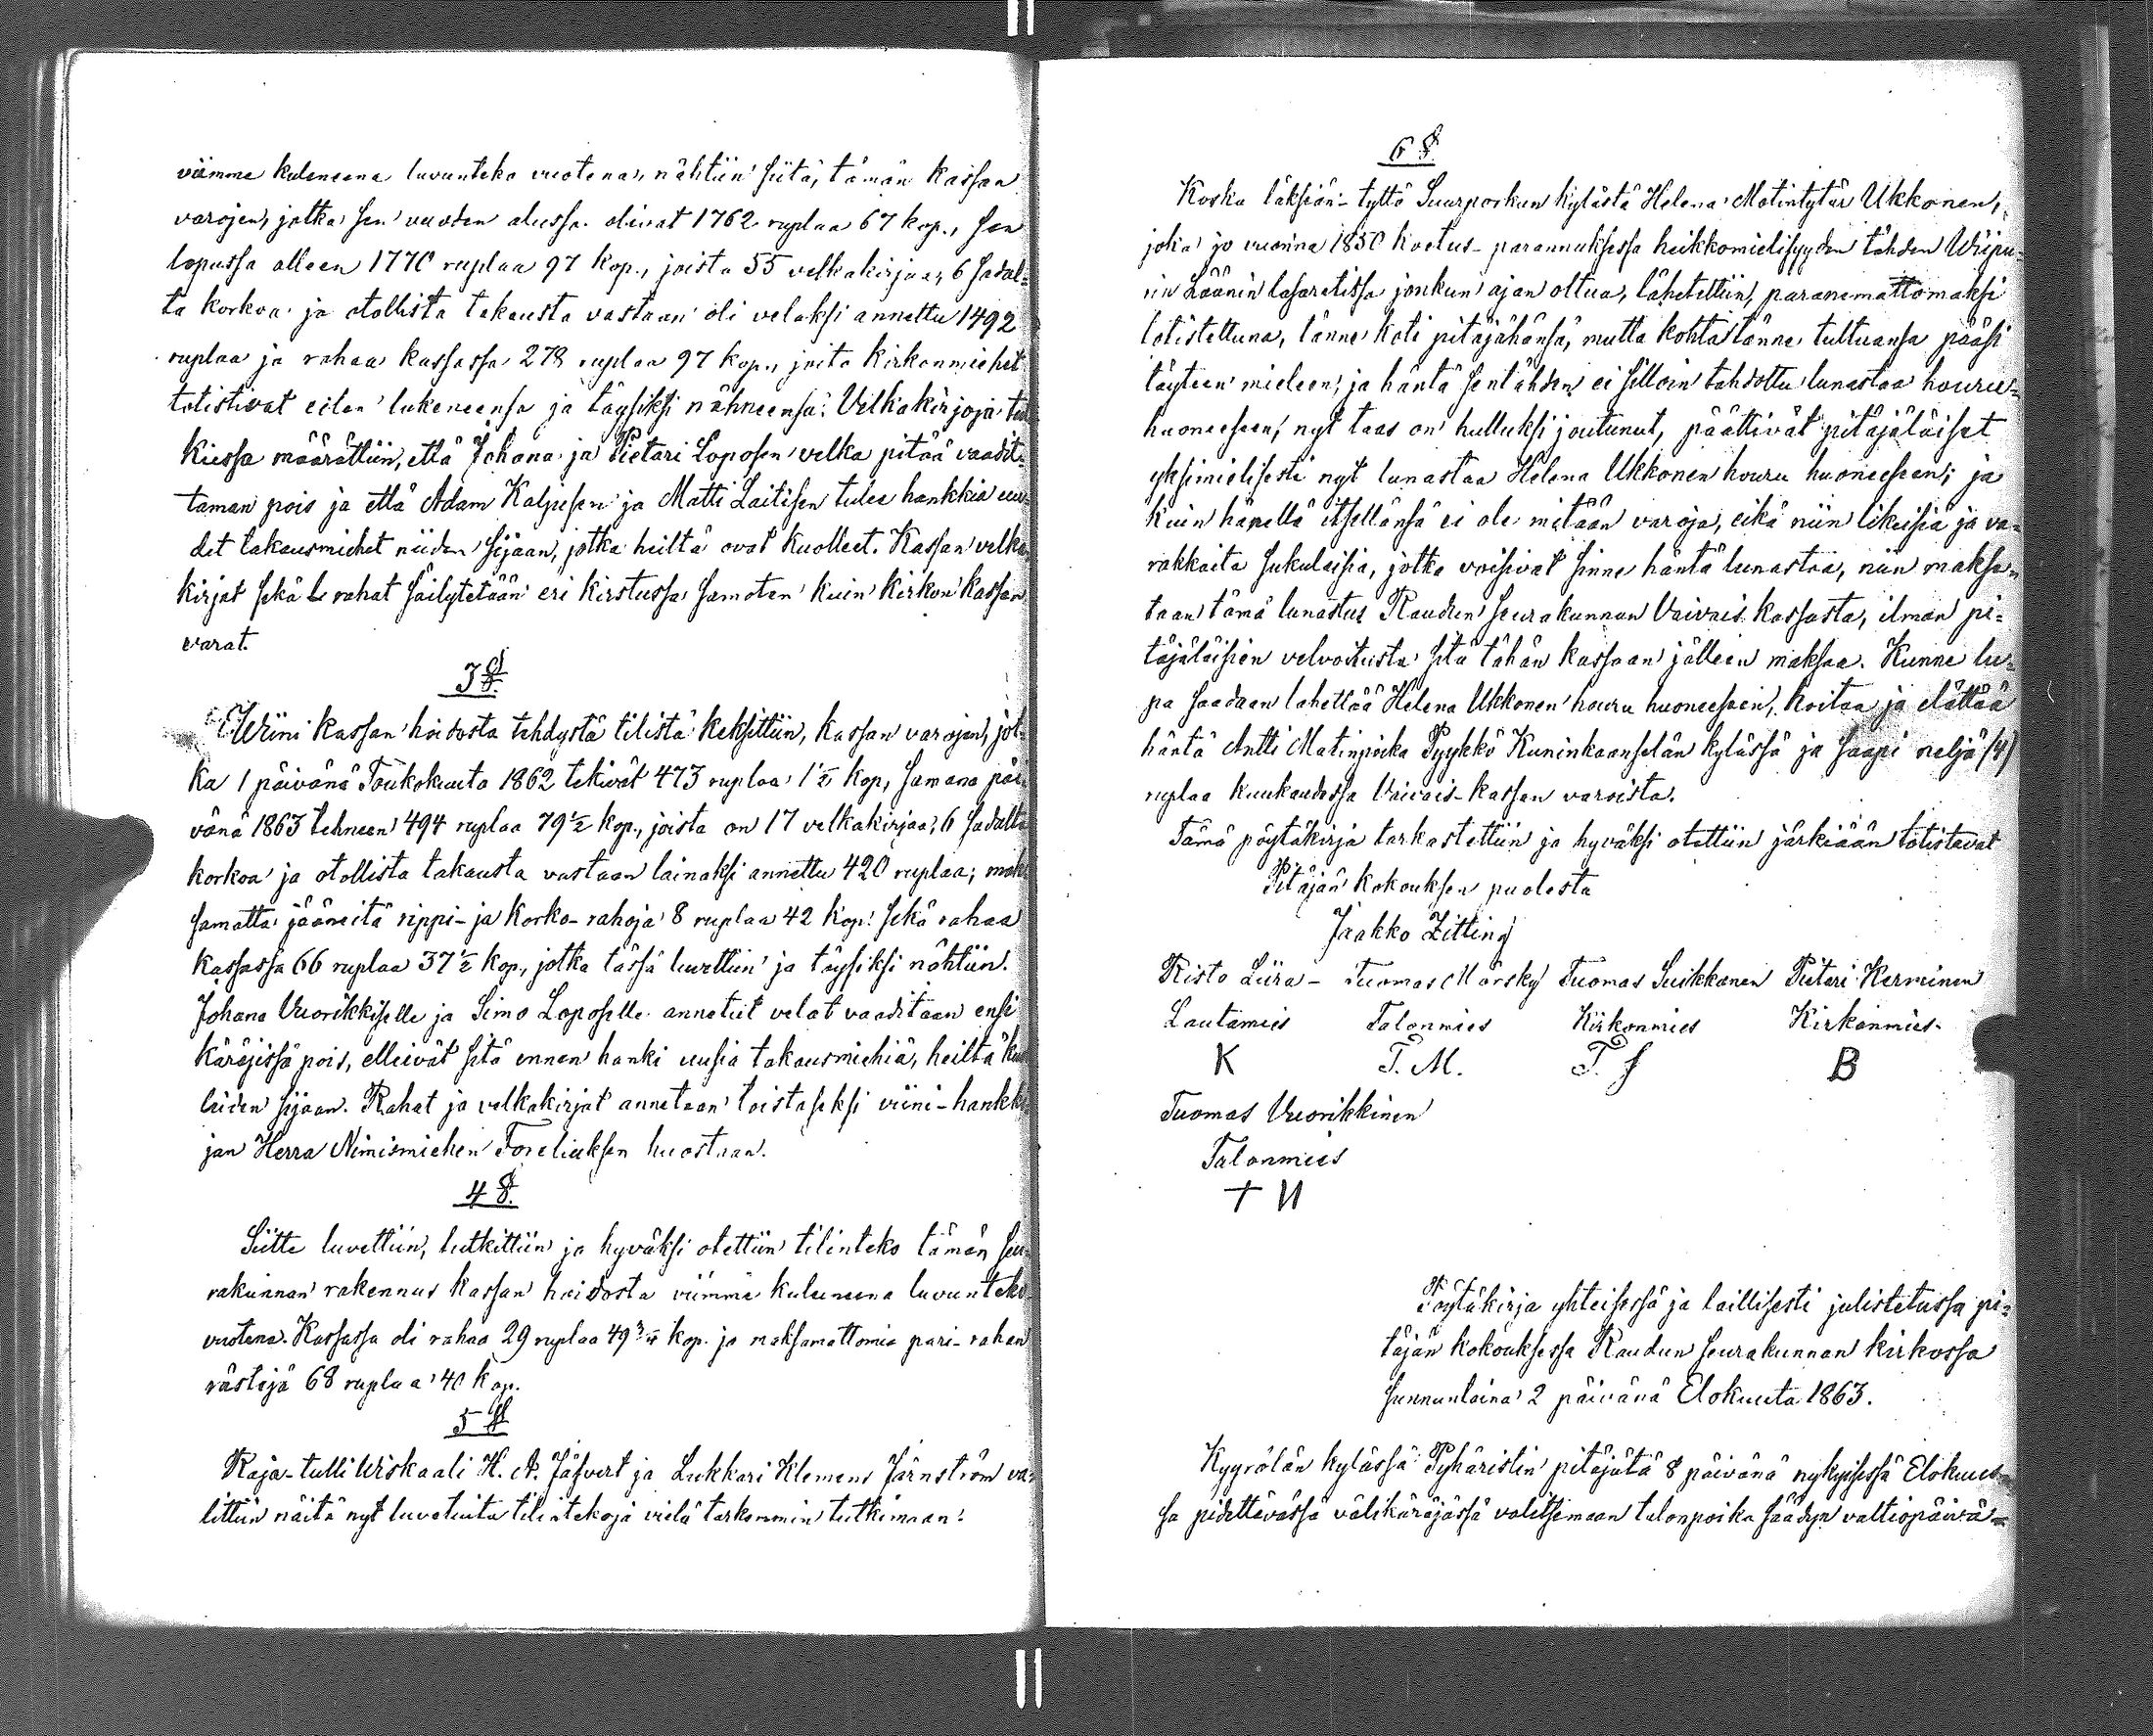 viimme kuleneena luvunteko vuotena, nähtiin siitä, tämän kassan
varojen, jotka sen vuoden alussa olivat 1762 ruplaa 67 kop., sen
lopussa olleen 1770 ruplaa 97 kop., joista 55 velkakirjaa, 6 sadal=
ta korkoa ja otollista takausta vastaan oli velaksi annettu 1492
ruplaa ja rahaa kassassa 278 ruplaa 97 kop., joita kirkonmiehet
totistivat eilen lukeneensa ja täysiksi nähneensä. Velkakirjoja tut
kiessa määrättiin, että Johana ja Pietari Loposen velka pitää vaadit=
taman pois ja että Adam Kalpisen ja Matti Laitisen tulee hankkia uu=
det takausmiehet niiden sijaan, jotka heiltä ovat kuolleet. Kassan velka=
kirjat sekä rahat säilytetään eri kirstussa samoten kuin kirkon kassan
varat.
3 §.
Wiini kassan hoidosta tehdystä tilistä keksittiin, kassan varojen, jot=
ka 1 päivänä Toukokuuta 1862 tekivät 473 ruplaa 1 1/2 kop, samana päi=
vänä 1863 tehneen 494 ruplaa 79 1/2 kop., joista on 17 velkakirjaa, 6 sadalta
korkoa ja otollista takausta vastaan lainaksi annettu 420 ruplaa; mak
samatta jääneitä rippi- ja korko-rahoja 8 ruplaa 42 kop. sekä rahaa
kassassa 66 ruplaa 37 1/2 kop., jotka tässä luvettiin ja täysiksi nähtiin.
Johana Vuorikkiselle ja Simo Loposelle annetut velat vaaditaan ensi
käräjissä pois, elleivät sitä ennen hanki uusia takausmiehiä, heiltä kuo
leiden sijaan. Rahat ja velkakirjat annetaan toistaseksi viini-hankki
jan Herra Nimismiehen Foreliuksen huostaan.
4 §.
Siitte luvettiin, tutkittiin ja hyväksi otettiin tilinteko tämän seu=
rakunnan rakennus kassan hoidosta viimme kuluneena luvunteko
vuotena. Kassassa oli rahaa 29 ruplaa 49 3/4 kop. ja maksamattomia pari-rahan
rästejä 68 ruplaa 40 kop.
5 §
Raja-tulli Wiskaali H. A. Jäfvert ja Lukkari Klemens Järnström va=
littiin näitä nyt luvetuita tilintekoja vielä tarkemmin tutkimaan.
6 §.
Koska läksiän-tyttö Suurporkun kylästä Helena Matintytär Ukkonen,
joka jo vuonna 1850 koetus-parannuksessa heikkomielisyyden tähden Wiipu=
rin Läänin lasaretissa jonkun ajan oltua, lähetettiin, paranemattomaksi
totistettuna, tänne koti pitäjähänsä, mutta kohta tänne tultuansa pääsi
täyteen mieleen, ja häntä sentähden ei silloin tahdottu lunastaa houru=
huoneeseen, nyt taas on hulluksi joutunut, päättivät pitäjäläiset
yksimielisesti nyt lunastaa Helena Ukkonen houru huoneeseen; ja
kuin hänellä itsellänsä ei ole mitään varoja, eikä niin likeisiä ja va=
rakkaita sukulaisia, jotka voisivat sinne häntä lunastaa, niin makse=
taan tämä lunastus Raudun seurakunnan Vaivais kassasta, ilman pi=
täjäläisien velvoitusta sitä tähän kassaan jälleen maksaa. Kunne lu=
pa saadaan lahettää Helena Ukkonen houru huoneeseen, hoitaa ja elättää
häntä Antti Matinpoika Pyykkö Kuninkaanselän kylässä ja saapi neljä (4)
ruplaa kuukaudessa Vaivais-kassan varoista.
Tämä pöytäkirja tarkastettiin ja hyväksi otettiin järkiään totistavat
Pitäjän kokouksen puolesta
Jaakko Zitting
Risto Liira - Tuomas Mörsky Tuomas Suikkanen Pietari Kerminen
Lautamies Talonmies Kirkonmies Kirkonmies.
K T. M. T. S B
Tuomas Vuorikkinen
Talonmies
T U
Pöytäkirja yhteisessä ja laillisesti julistetussa pi=
täjän kokouksessa Raudun seurakunnan kirkossa
sunnuntaina 2 päivänä Elokuuta 1863.
Kyyrölän kylässä Pyhäristin pitäjätä 8 päivänä nykyisessä Elokuus=
sa pidettävässä välikäräjässä valitsemaan talonpoika säädyn valtiopäivä=